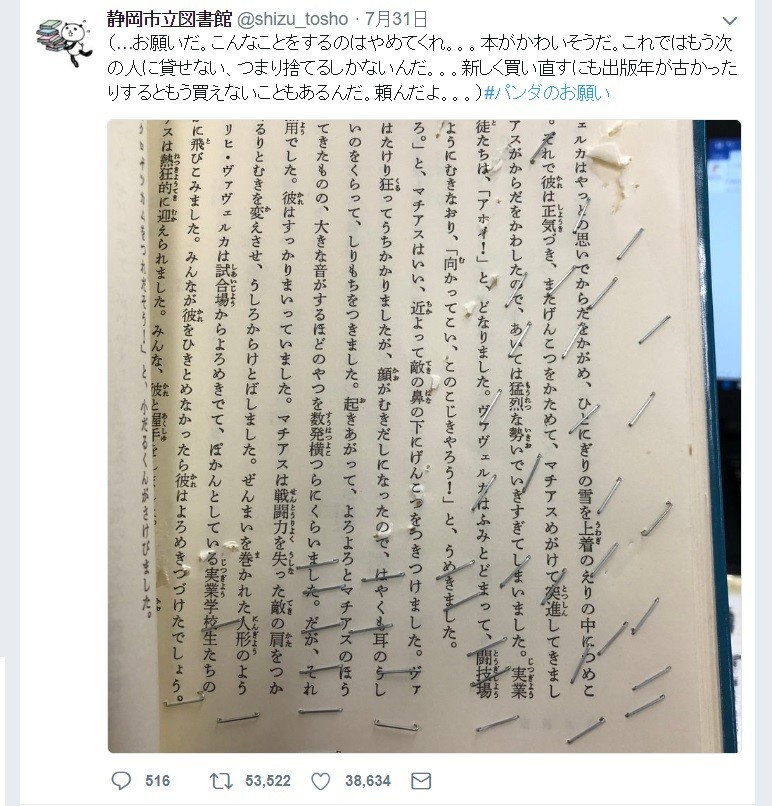 静岡市立図書館 @shizu_tosho · 7月31日
(…お願いだ。こんなことをするのはやめてくれ。。。本がかわいそうだ。これではもう次
の人に貸せない、つまり捨てるしかないんだ。。。新しく買い直すにも出版年が古かった
りするともう買えないこともあるんだ。頼んだよ。。。)#パンダのお願い
ェルカはやっとの思いでからだをかがめ、ひとにぎりの雪を上着のえりの中につめこ
。それで彼は正気づき、またげんこつをかためて、マチアスめがけて突進してきまし
アスがからだをかわしたので、あいては猛烈な勢いでいきすぎてしまいました。実業
徒たちは、「アホイ！」と、どなりました。ヴァヴェルカはふみとどまって、闘技場
ようにむきなおり、「向かってこい、このこじきやろう！」と、うめきました。
ろ。」と、マチアスはいい、近よって敵の鼻の下にげんこつをつきつけました。ヴァ
はたけり狂ってうちかかりましたが、顔がむきだしになったので、はやくも耳のうし
いのをくらって、しりもちをつきました。起きあがって、よろよろとマチアスのほう
てきたものの、大きな音がするほどのやつを数発横つらにくらいました。だが、それ
用でした。彼はすっかりまいっていました。マチアスは戦闘力を失った敵の肩をつか
るりとむきを変えさせ、うしろからけとばしました。ぜんまいを巻かれた人形のよう
リヒ・ヴァヴェルカは試合場からよろめきでて、ぽかんとしている実業学校生たちの
に飛びこみました。みんなが彼をひきとめなかったら彼はよろめきつづけたでしょう。
スは熱狂的に迎えられました。みんな、彼と握手をしました
そう！」と、小だるくんがさけびました。
516 53,522 38,634